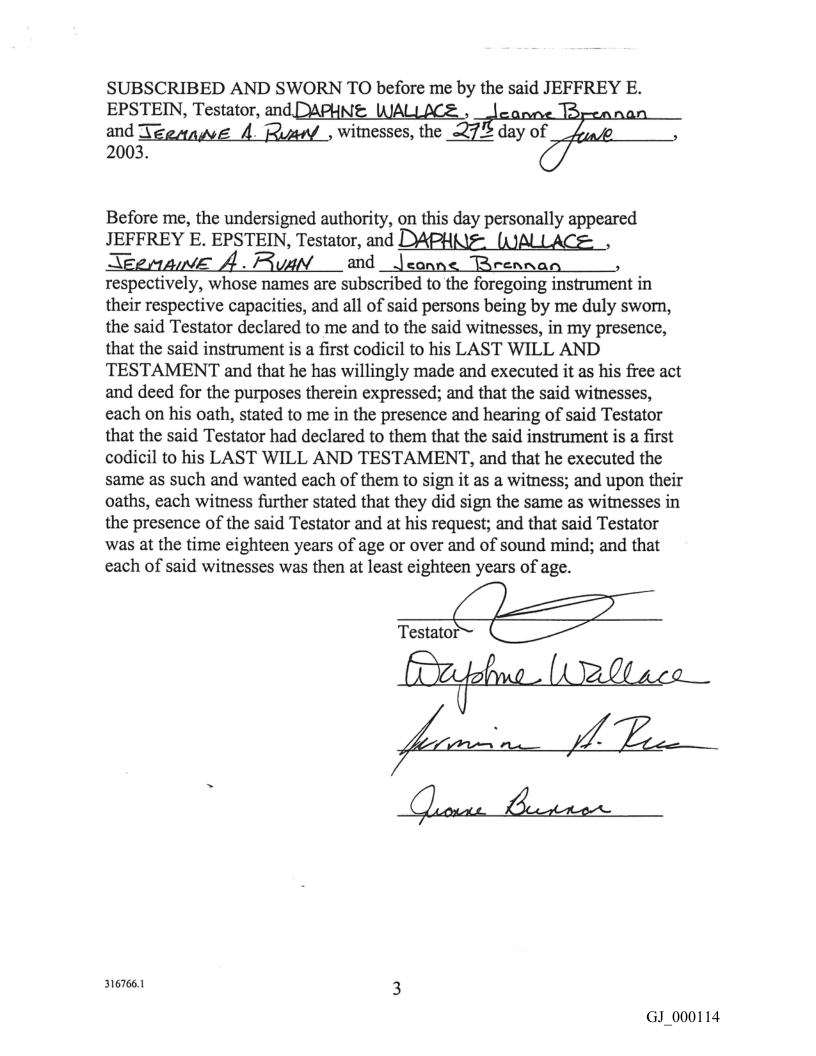 SUBSCRIBED AND SWORN TO before me by the said JEFFREY E.
EPSTEIN, Testator, and DAPHNE WALLACE, Jeanne Brennan
and JERMAINE A. RUAN, witnesses, the 27th day of June,
2003.
Before me, the undersigned authority, on this day personally appeared
JEFFREY E. EPSTEIN, Testator, and DAPHNE WALLACE,
JERMAINE A. RUAN and Jeanne Brennan,
respectively, whose names are subscribed to the foregoing instrument in
their respective capacities, and all of said persons being by me duly sworn,
the said Testator declared to me and to the said witnesses, in my presence,
that the said instrument is a first codicil to his LAST WILL AND
TESTAMENT and that he has willingly made and executed it as his free act
and deed for the purposes therein expressed; and that the said witnesses,
each on his oath, stated to me in the presence and hearing of said Testator
that the said Testator had declared to them that the said instrument is a first
codicil to his LAST WILL AND TESTAMENT, and that he executed the
same as such and wanted each of them to sign it as a witness; and upon their
oaths, each witness further stated that they did sign the same as witnesses in
the presence of the said Testator and at his request; and that said Testator
was at the time eighteen years of age or over and of sound mind; and that
each of said witnesses was then at least eighteen years of age.
Testator
Daphne Wallace
Jermaine A. Ruan
Jeanne Brennan
316766.1
3
GJ_000114